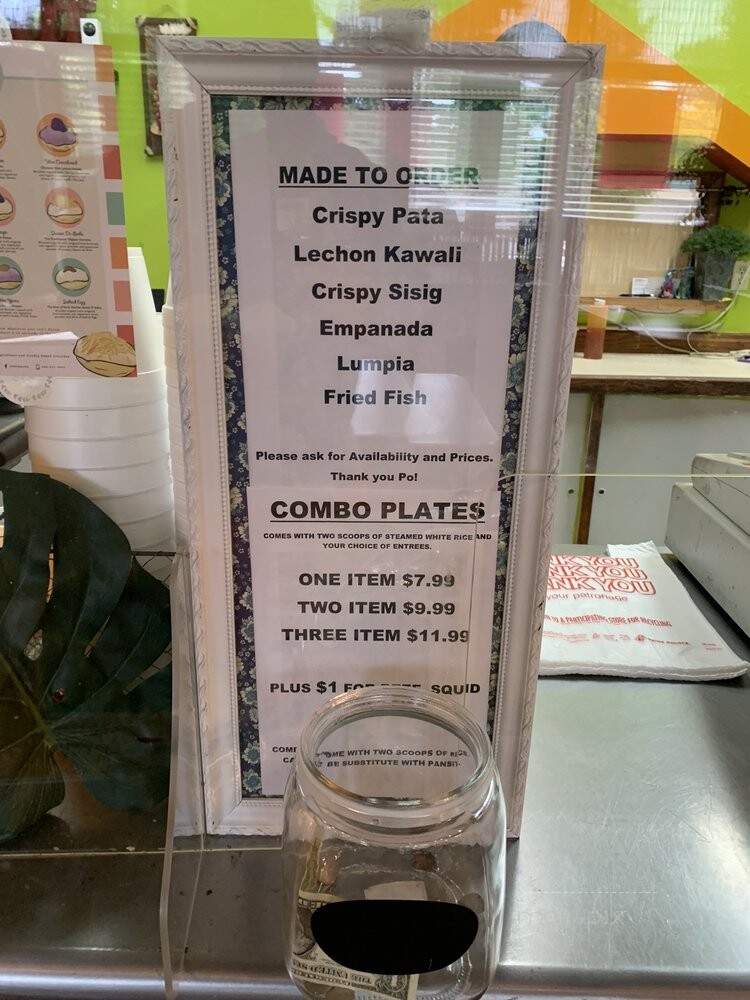 MADE TO ORDER
Crispy Pata
Lechon Kawali
Crispy Sisig
Empanada
Lumpia
Fried Fish
Please ask for Availability and Prices.
Thank you Po!
COMBO PLATES
COMES WITH TWO SCOOPS OF STEAMED WHITE RICE AND
YOUR CHOICE OF ENTREES.
ONE ITEM $7.99
TWO ITEM $9.99
THREE ITEM $11.99
PLUS $1 FOR BEEF, SQUID
COME WITH TWO SCOOPS OF RICE
BE SUBSTITUTE WITH PANSIT
Salted Egg
THANK YOU
your patronage
A PARTICIPATING STORE FOR RECYCLING